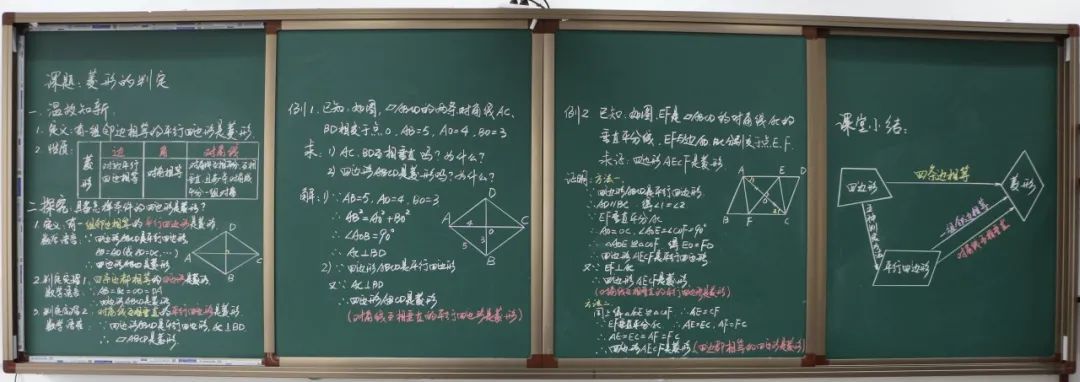 课题:菱形的判定
一.温故知新
1.定义:有一组邻边相等的平行四边形是菱形.
2.性质:
边 角 对角线
菱形
对边平行 四边相等
对角相等
对角线互相平分且相互垂直,且每一条对角线平分一组对角
二.探究:具备怎样条件的四边形是菱形?
1.定义:有一组邻边相等的平行四边形是菱形.
数学语言:∵四边形ABCD是平行四边形
∴四边形ABCD是菱形
2.判定定理1:四条边都相等的四边形是菱形.
数学语言:∵AB=BC=CD=DA
∴四边形ABCD是菱形
3.判定定理2:对角线互相垂直的平行四边形是菱形.
数学语言:∵四边形ABCD是平行四边形,AC⊥BD
∴▱ABCD是菱形
D
A C
B
例1.已知:如图,▱ABCD的两条对角线AC、
BD相交于点O,AB=5,AO=4,BO=3
求:1)AC、BD互相垂直吗?为什么?
2)四边形ABCD是菱形吗?为什么?
解:1)∵AB=5,AO=4,BO=3
∴AB²=AO²+BO²
∴∠AOB=90°
∴AC⊥BD
2)∵四边形ABCD是平行四边形
又∵AC⊥BD
∴四边形ABCD是菱形
(对角线互相垂直的平行四边形是菱形)
D
A 4 C
5 3
B
例2 已知:如图,EF是▱ABCD的对角线AC的
垂直平分线,EF与边AD、BC分别交于点E、F.
求证:四边形AECF是菱形.
证明:方法一:
∵四边形ABCD是平行四边形
∴AD∥BC 得∠1=∠2
∵EF垂直平分AC
∴AO=OC,∠AOE=∠COF=90°
∴△AOE≌△COF 得EO=FO
∴四边形AECF是平行四边形
又∵EF⊥AC
∴四边形AECF是菱形
(对角线互相垂直的平行四边形是菱形)
方法二:
同上得△AOE≌△COF ∴AE=CF
∵EF垂直平分AC ∴AE=EC,AF=FC
∴AE=EC=AF=FC
∴四边形AECF是菱形(四边都相等的四边形是菱形)
A E D
B F C
课堂小结:
四边形
四条边相等
菱形
五种判定方法
一组邻边相等
对角线互相垂直
平行四边形